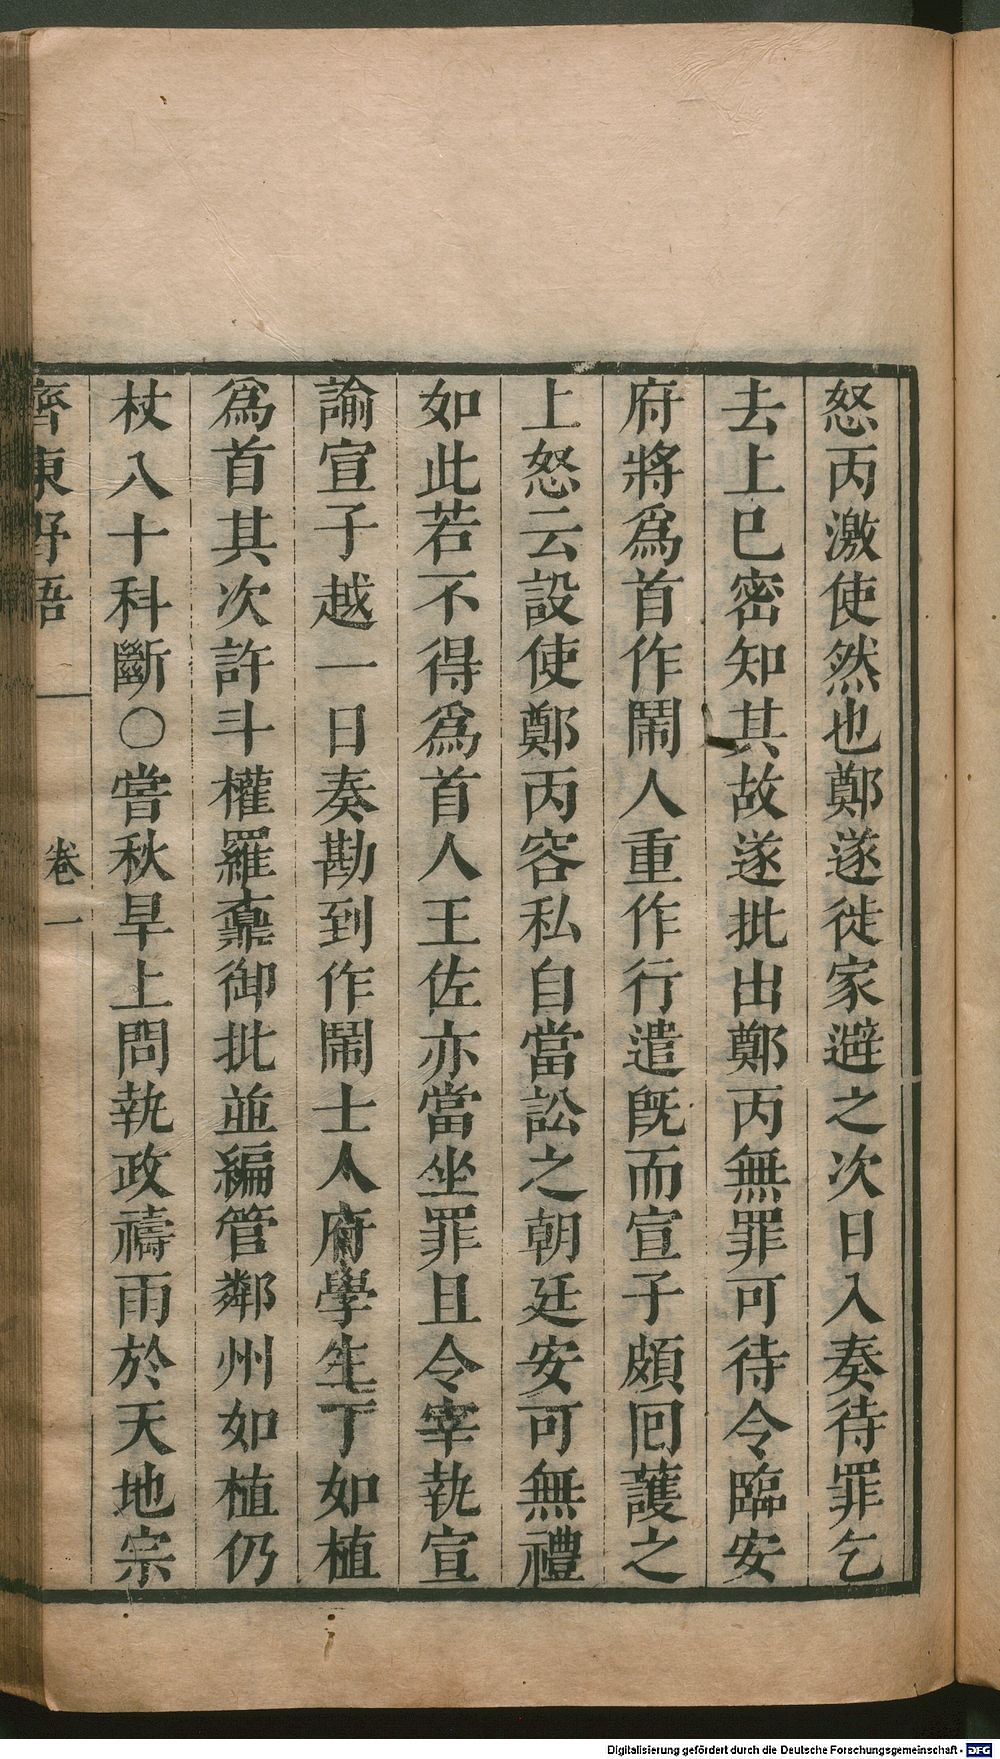 怒丙激使然也鄭遂徙家避之次日入奏待罪乞
去上已密知其故遂批出鄭丙無罪可待令臨安
府將爲首作鬧人重作行遣旣而宣子頗囘護之
上怒云設使鄭丙容私自當訟之朝廷安可無禮
如此若不得爲首人王佐亦當坐罪且令宰執宣
諭宣子越一日奏勘到作鬧士人府學生丁如植
爲首其次許斗權羅鼒御批並編管鄰州如植仍
杖八十科斷〇嘗秋旱上問執政禱雨於天地宗
齊東野語
卷一
Digitalisierung gefördert durch die Deutsche Forschungsgemeinschaft - DFG